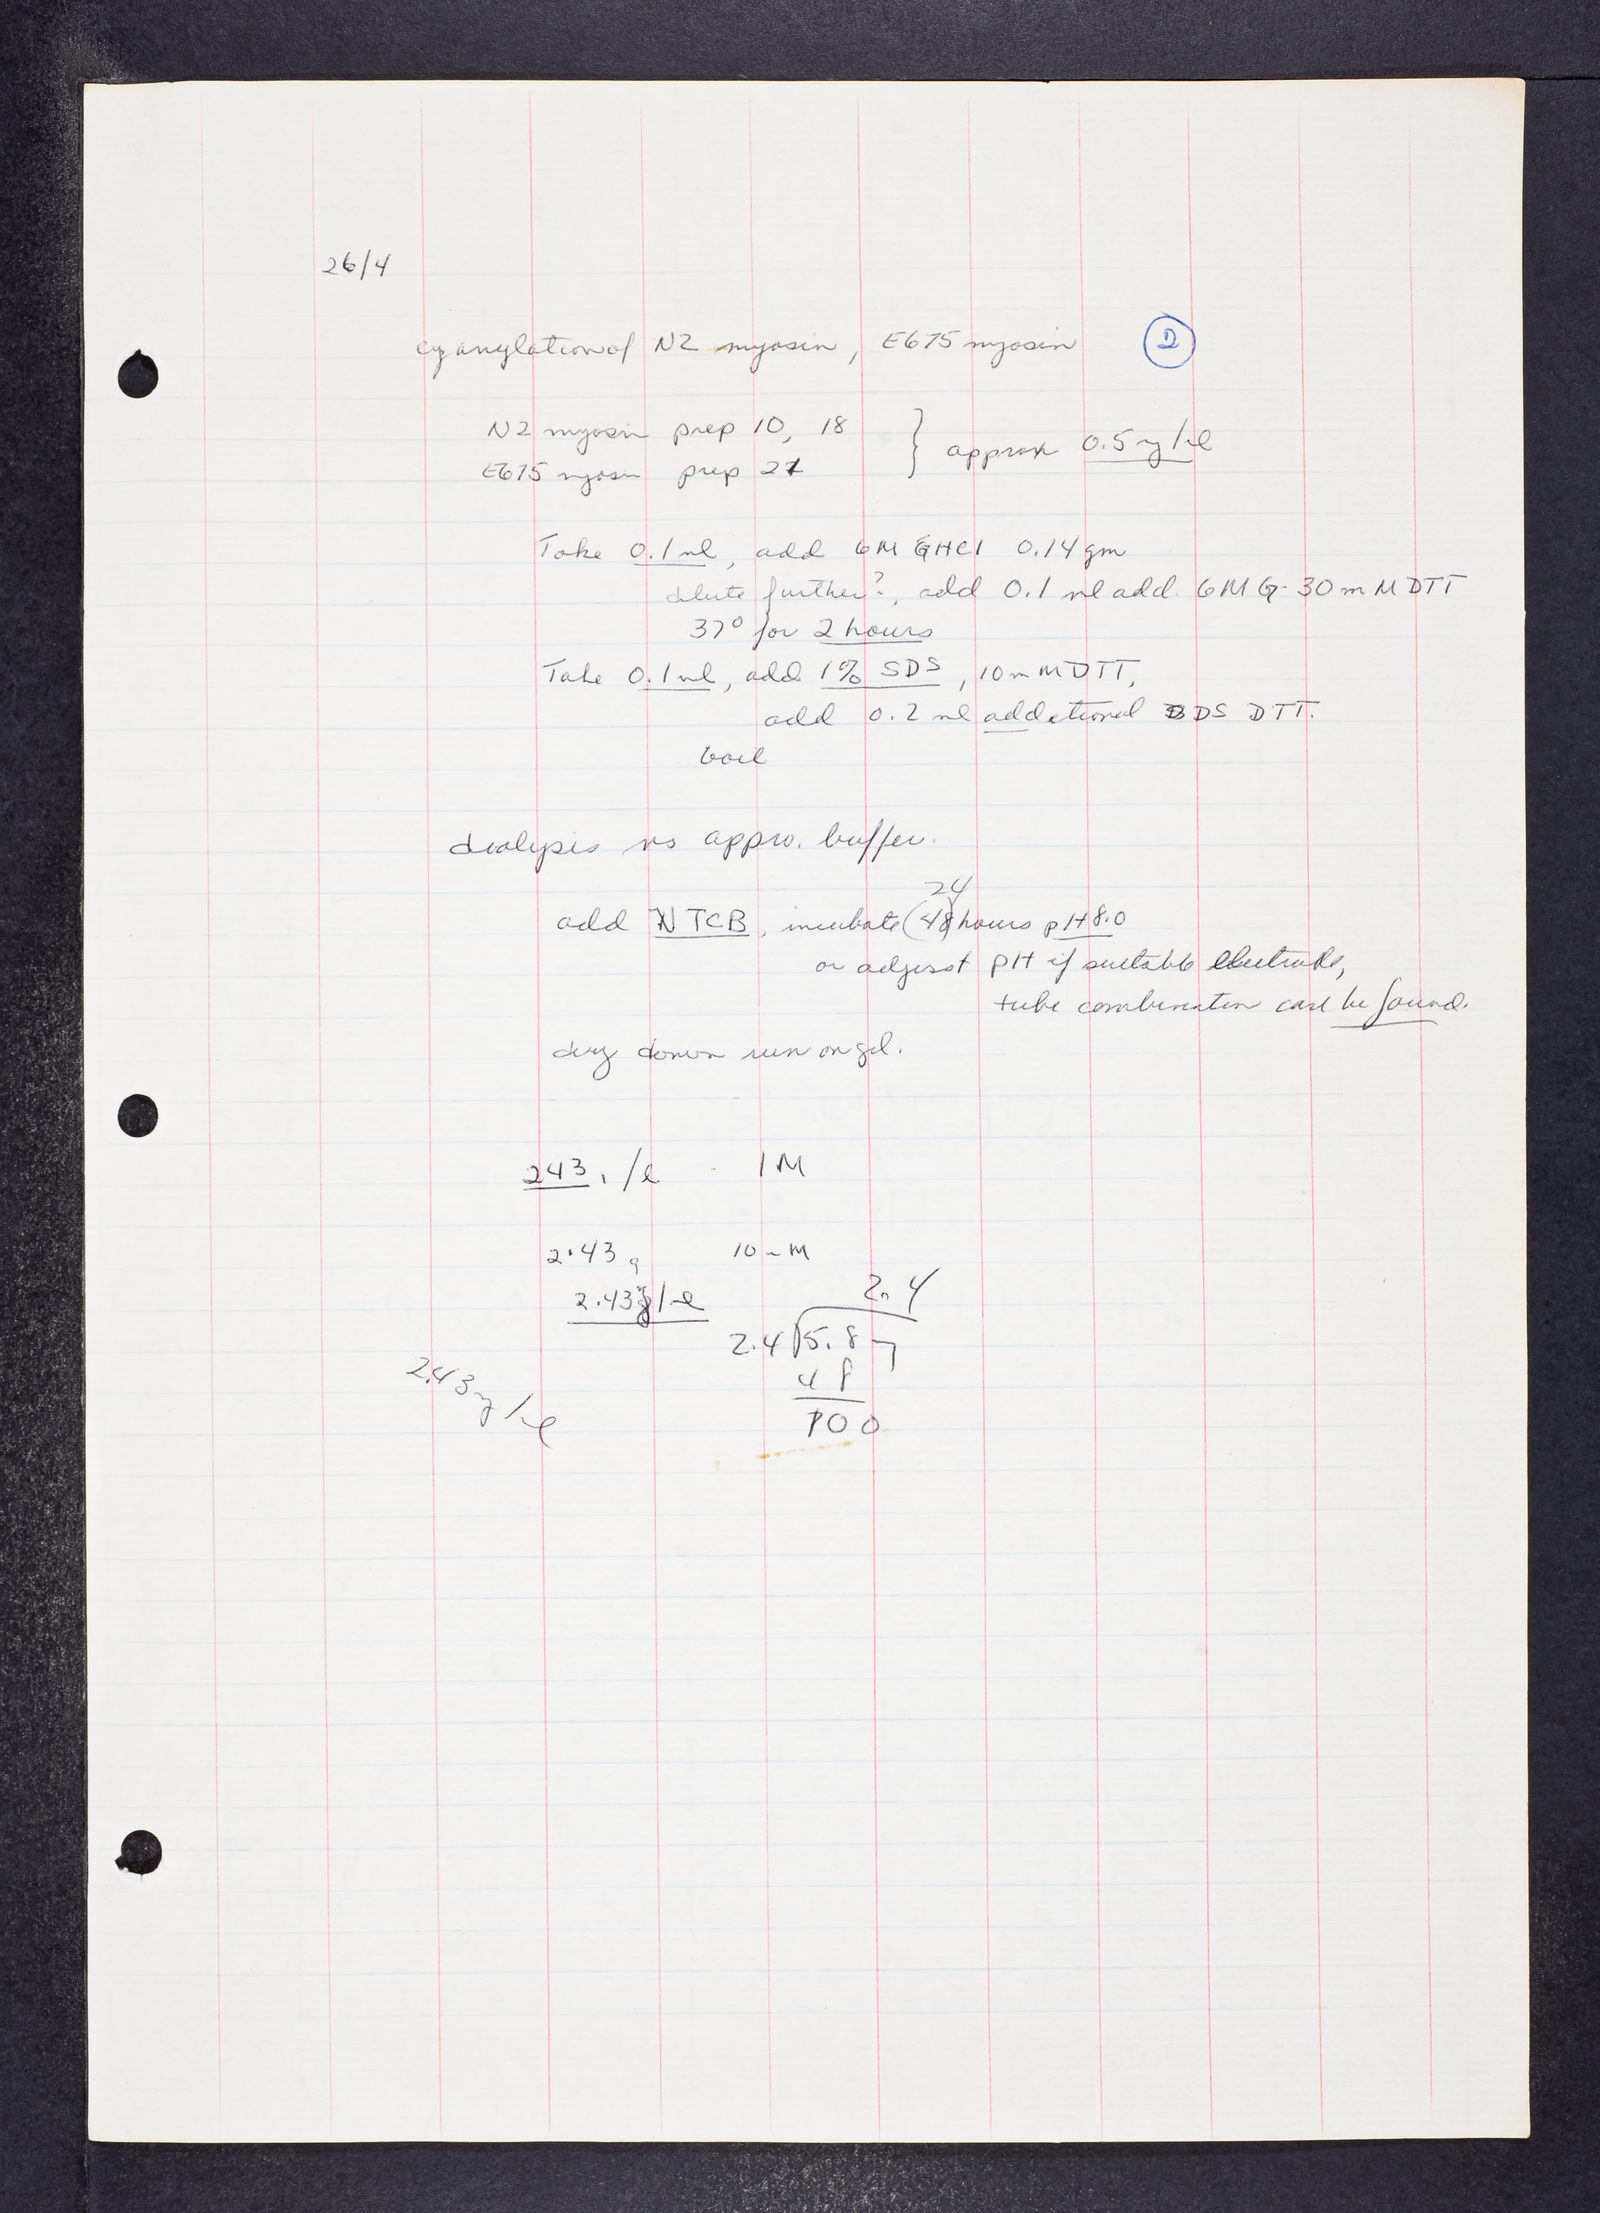 26/4
cyanylation of N2 myosin, E675 myosin D
N2 myosin prep 10, 18
E675 myosin prep 21
} approx 0.5 mg/ml
Take 0.1 ml, add 6M GHCl 0.14 gm
dilute further?, add 0.1 ml add. 6M G- 30 mM DTT
37° for 2 hours
Take 0.1 ml, add 1% SDS, 10 mM DTT,
add 0.2 ml additional SDS DTT.
boil
dialysis vs appro. buffer.
24
add NTCB, incubate (48) hours pH 8.0
or adjust pH if suitable electrode,
tube combination can be found.
dry down run on gel.
243 /l 1 M
2.43 g 10 mM
2.43 /ml
2.4
2.4)5.8
2.43 mg/ml
4 8
100